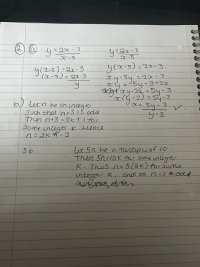 2) a) y = 2x - 3 / x - 5    y = 2x - 3 / x - 5
y(x-5) = 2x - 3    y(x-5) = 2x - 3
(x-5) = 2x - 3 / y    xy - 5y = 2x - 3
xy = 5y - 3 + 2x
xy - 2x = 5y - 3
x(y-2) = 5y - 3
x = 5y - 3 / y - 2
b) Let n be an integer
such that n+3 is odd
Then n+3 = 2k+1 for
some integer k. Hence
n = 2k - 2
Let 5n be a multiple of 10.
Then 5n = 10k for some integer
k. Thus n = 5(2k) for some
integer k, and so n-1 is odd